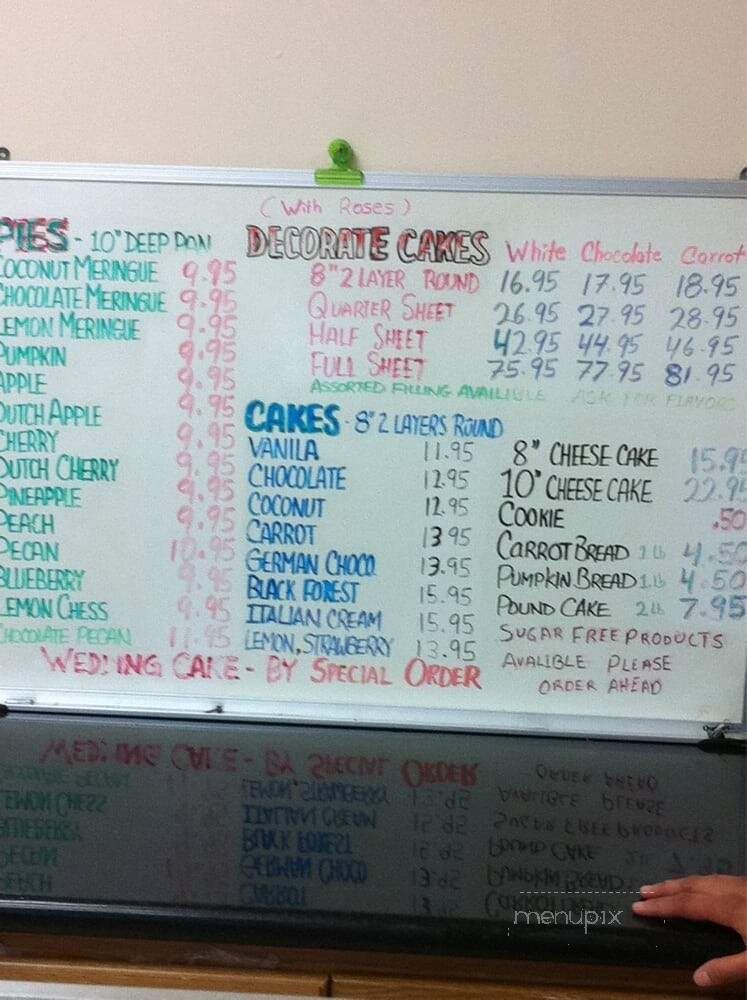 (With Roses)
PIES - 10" DEEP PAN
COCONUT MERINGUE 9.95
CHOCOLATE MERINGUE 9.95
LEMON MERINGUE 9.95
PUMPKIN 9.95
APPLE 9.95
DUTCH APPLE 9.95
CHERRY 9.95
DUTCH CHERRY 9.95
PINEAPPLE 9.95
PEACH 9.95
PECAN 10.95
BLUEBERRY 9.95
LEMON CHESS 9.95
CHOCOLATE PECAN 11.95
DECORATE CAKES White Chocolate Carrot
8" 2 LAYER ROUND 16.95 17.95 18.95
QUARTER SHEET 26.95 27.95 28.95
HALF SHEET 42.95 44.95 46.95
FULL SHEET 75.95 77.95 81.95
ASSORTED FILLING AVAILIBLE ASK FOR FLAVORS
CAKES - 8" 2 LAYERS ROUND
VANILA 11.95
CHOCOLATE 12.95
COCONUT 12.95
CARROT 13.95
GERMAN CHOCO. 13.95
BLACK FOREST 15.95
ITALIAN CREAM 15.95
LEMON, STRAWBERRY 13.95
8" CHEESE CAKE 15.95
10" CHEESE CAKE 22.95
COOKIE .50
CARROT BREAD 1 lb 4.50
PUMPKIN BREAD 1 lb 4.50
POUND CAKE 2 lb 7.95
SUGAR FREE PRODUCTS
AVALIBLE PLEASE
ORDER AHEAD
WEDDING CAKE - BY SPECIAL ORDER
menupix